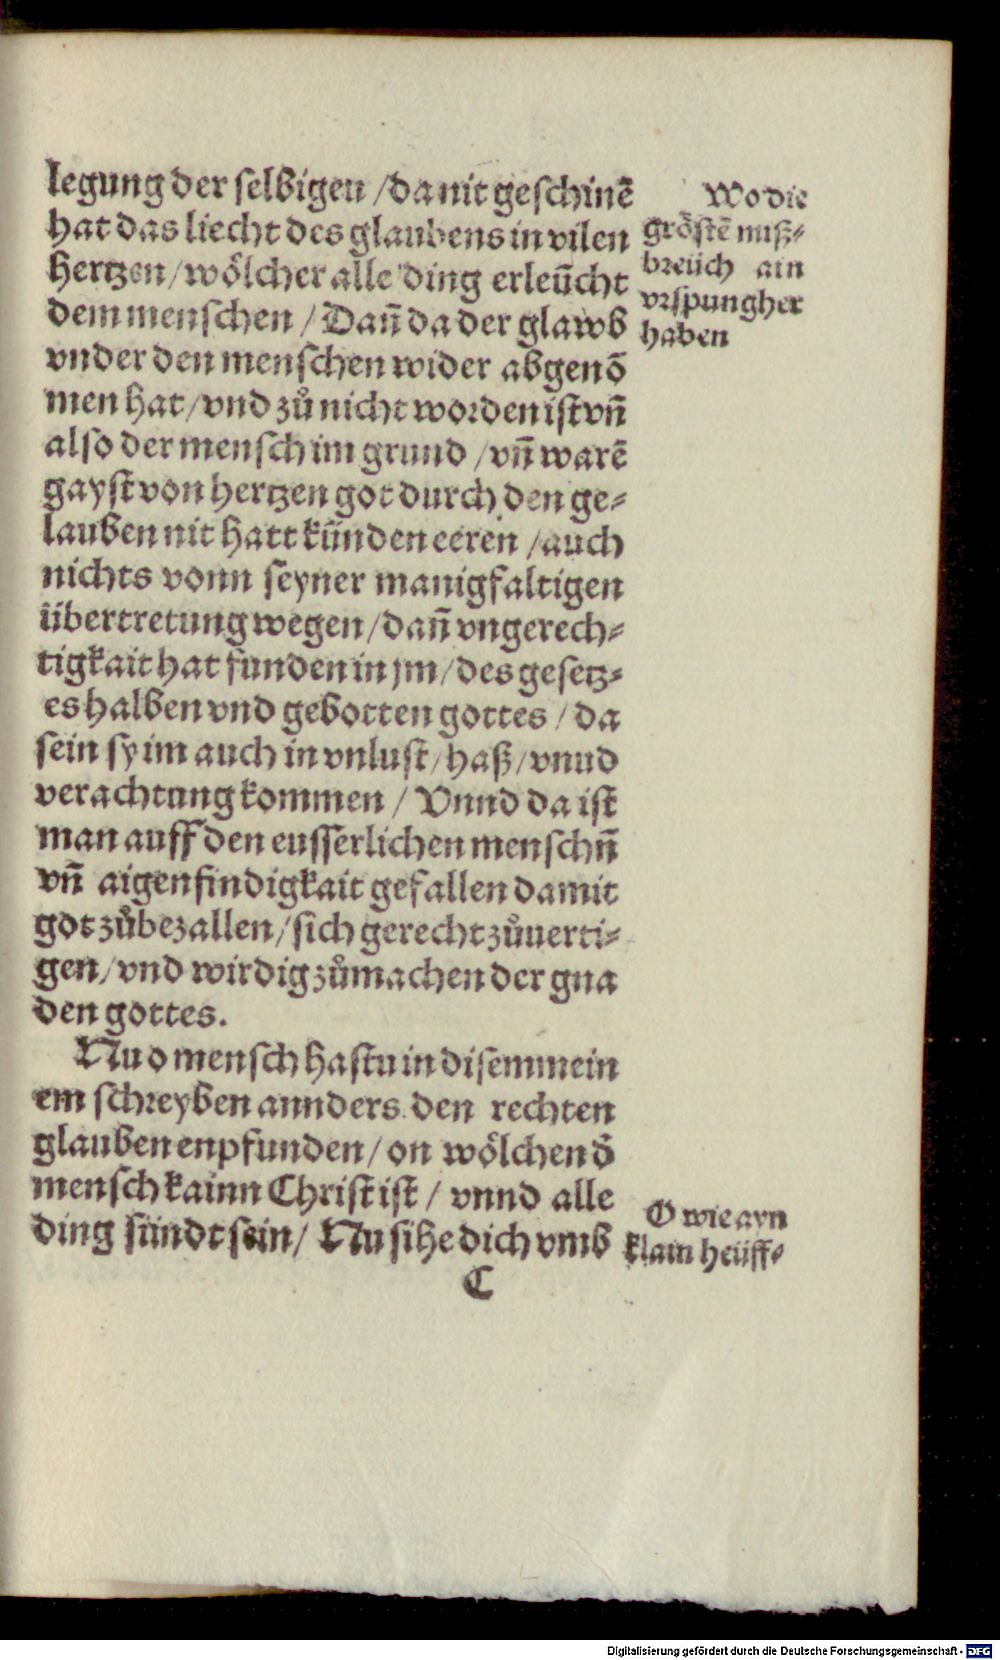 legung der selbigen / da nit geschinē
hat das liecht des glaubens in vilen
hertzen / wölcher alle ding erleūcht
dem menschen / Dañ da der glawb
vnder den menschen wider abgenō
men hat / vnd zů nicht worden ist vñ
also der mensch im grund / vñ warē
gayst von hertzen got durch den ge-
lauben nit hatt künden eeren / auch
nichts vonn seyner manigfaltigen
übertretung wegen / dañ vngerech-
tigkait hat funden in jm / des gesetz-
es halben vnd gebotten gottes / da
sein sy im auch in vnlust / haß / vnnd
verachtung kommen / Vnnd da ist
man auff den eusserlichen menschñ
vñ aigenfindigkait gefallen damit
got zůbezallen / sich gerecht zůuerti-
gen / vnd wirdig zůmachen der gna
den gottes.
Nu o mensch hastu in disem mein
em schreyben annders den rechten
glauben enpfunden / on wölchen ð
mensch kainn Christ ist / vnnd alle
ding sündt sein / Nu sihe dich vmb
C
Wo die
gröstē miß-
breüch ain
vrspung her
haben
O wie ayn
klain heüff-
Digitalisierung gefördert durch die Deutsche Forschungsgemeinschaft - DFG